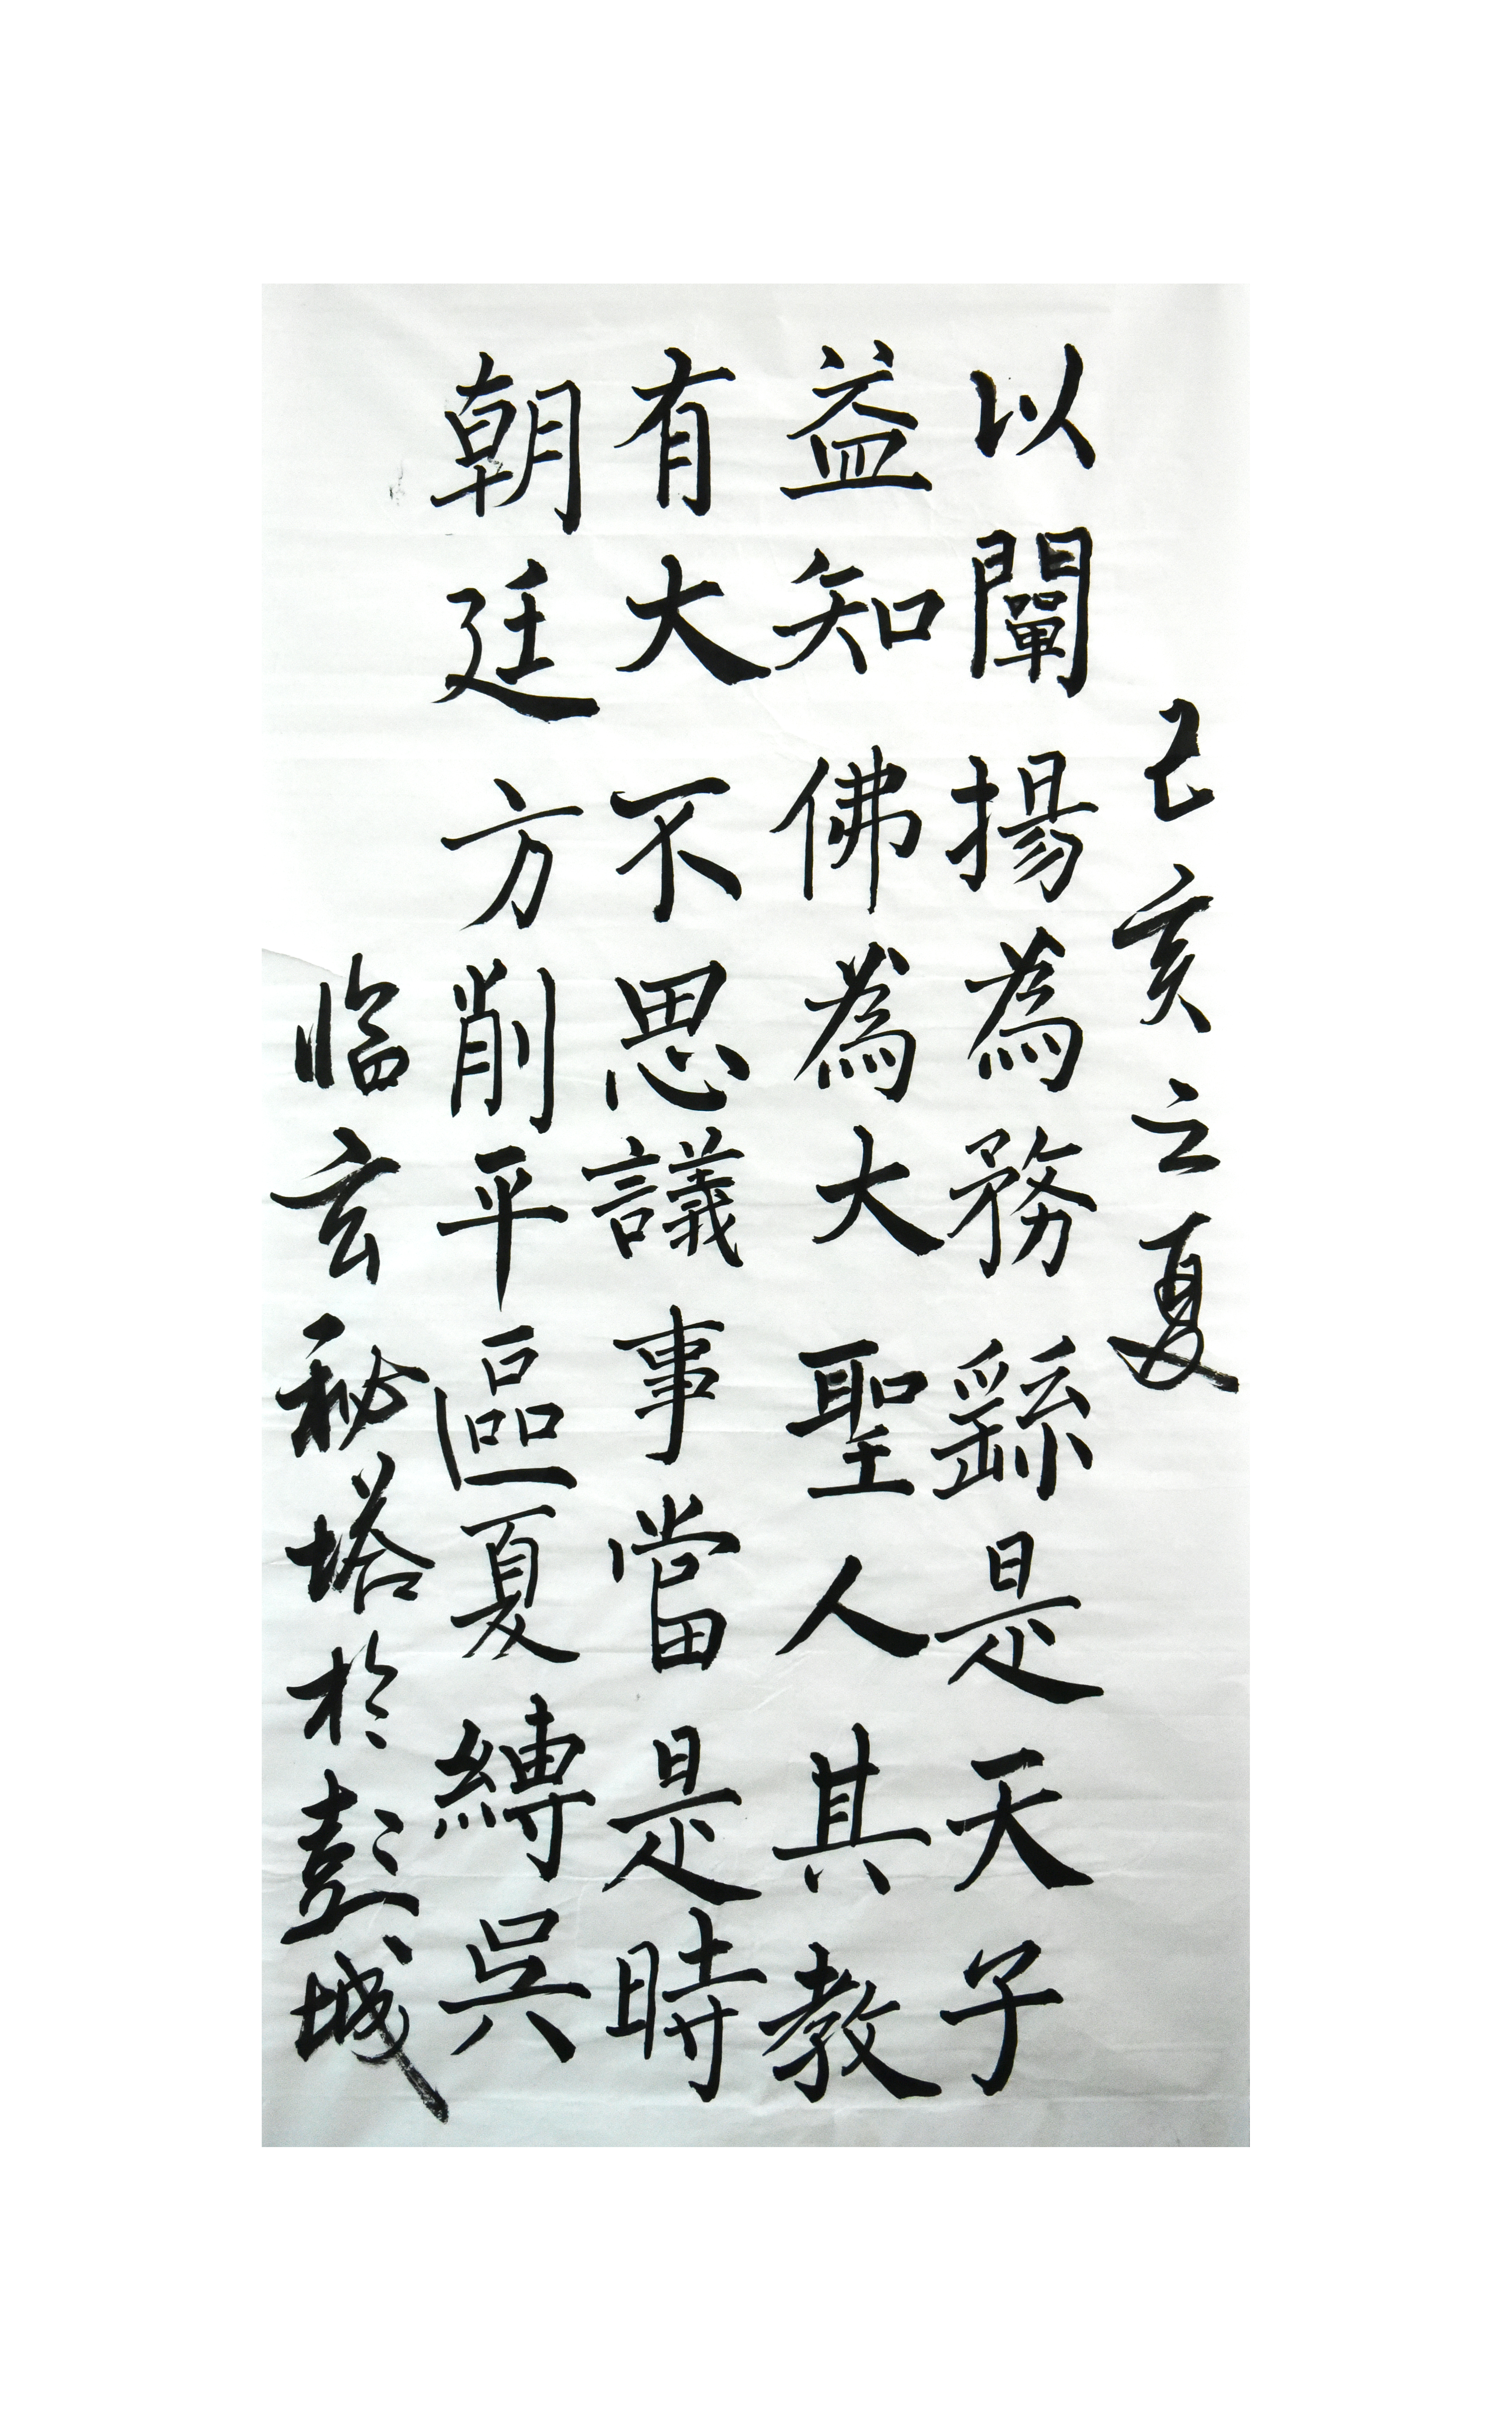 己亥之夏
以闡揚為務繇是天子
益知佛為大聖人其教
有大不思議事當是時
朝廷方削平區夏縛吳
临玄秘塔於彭城